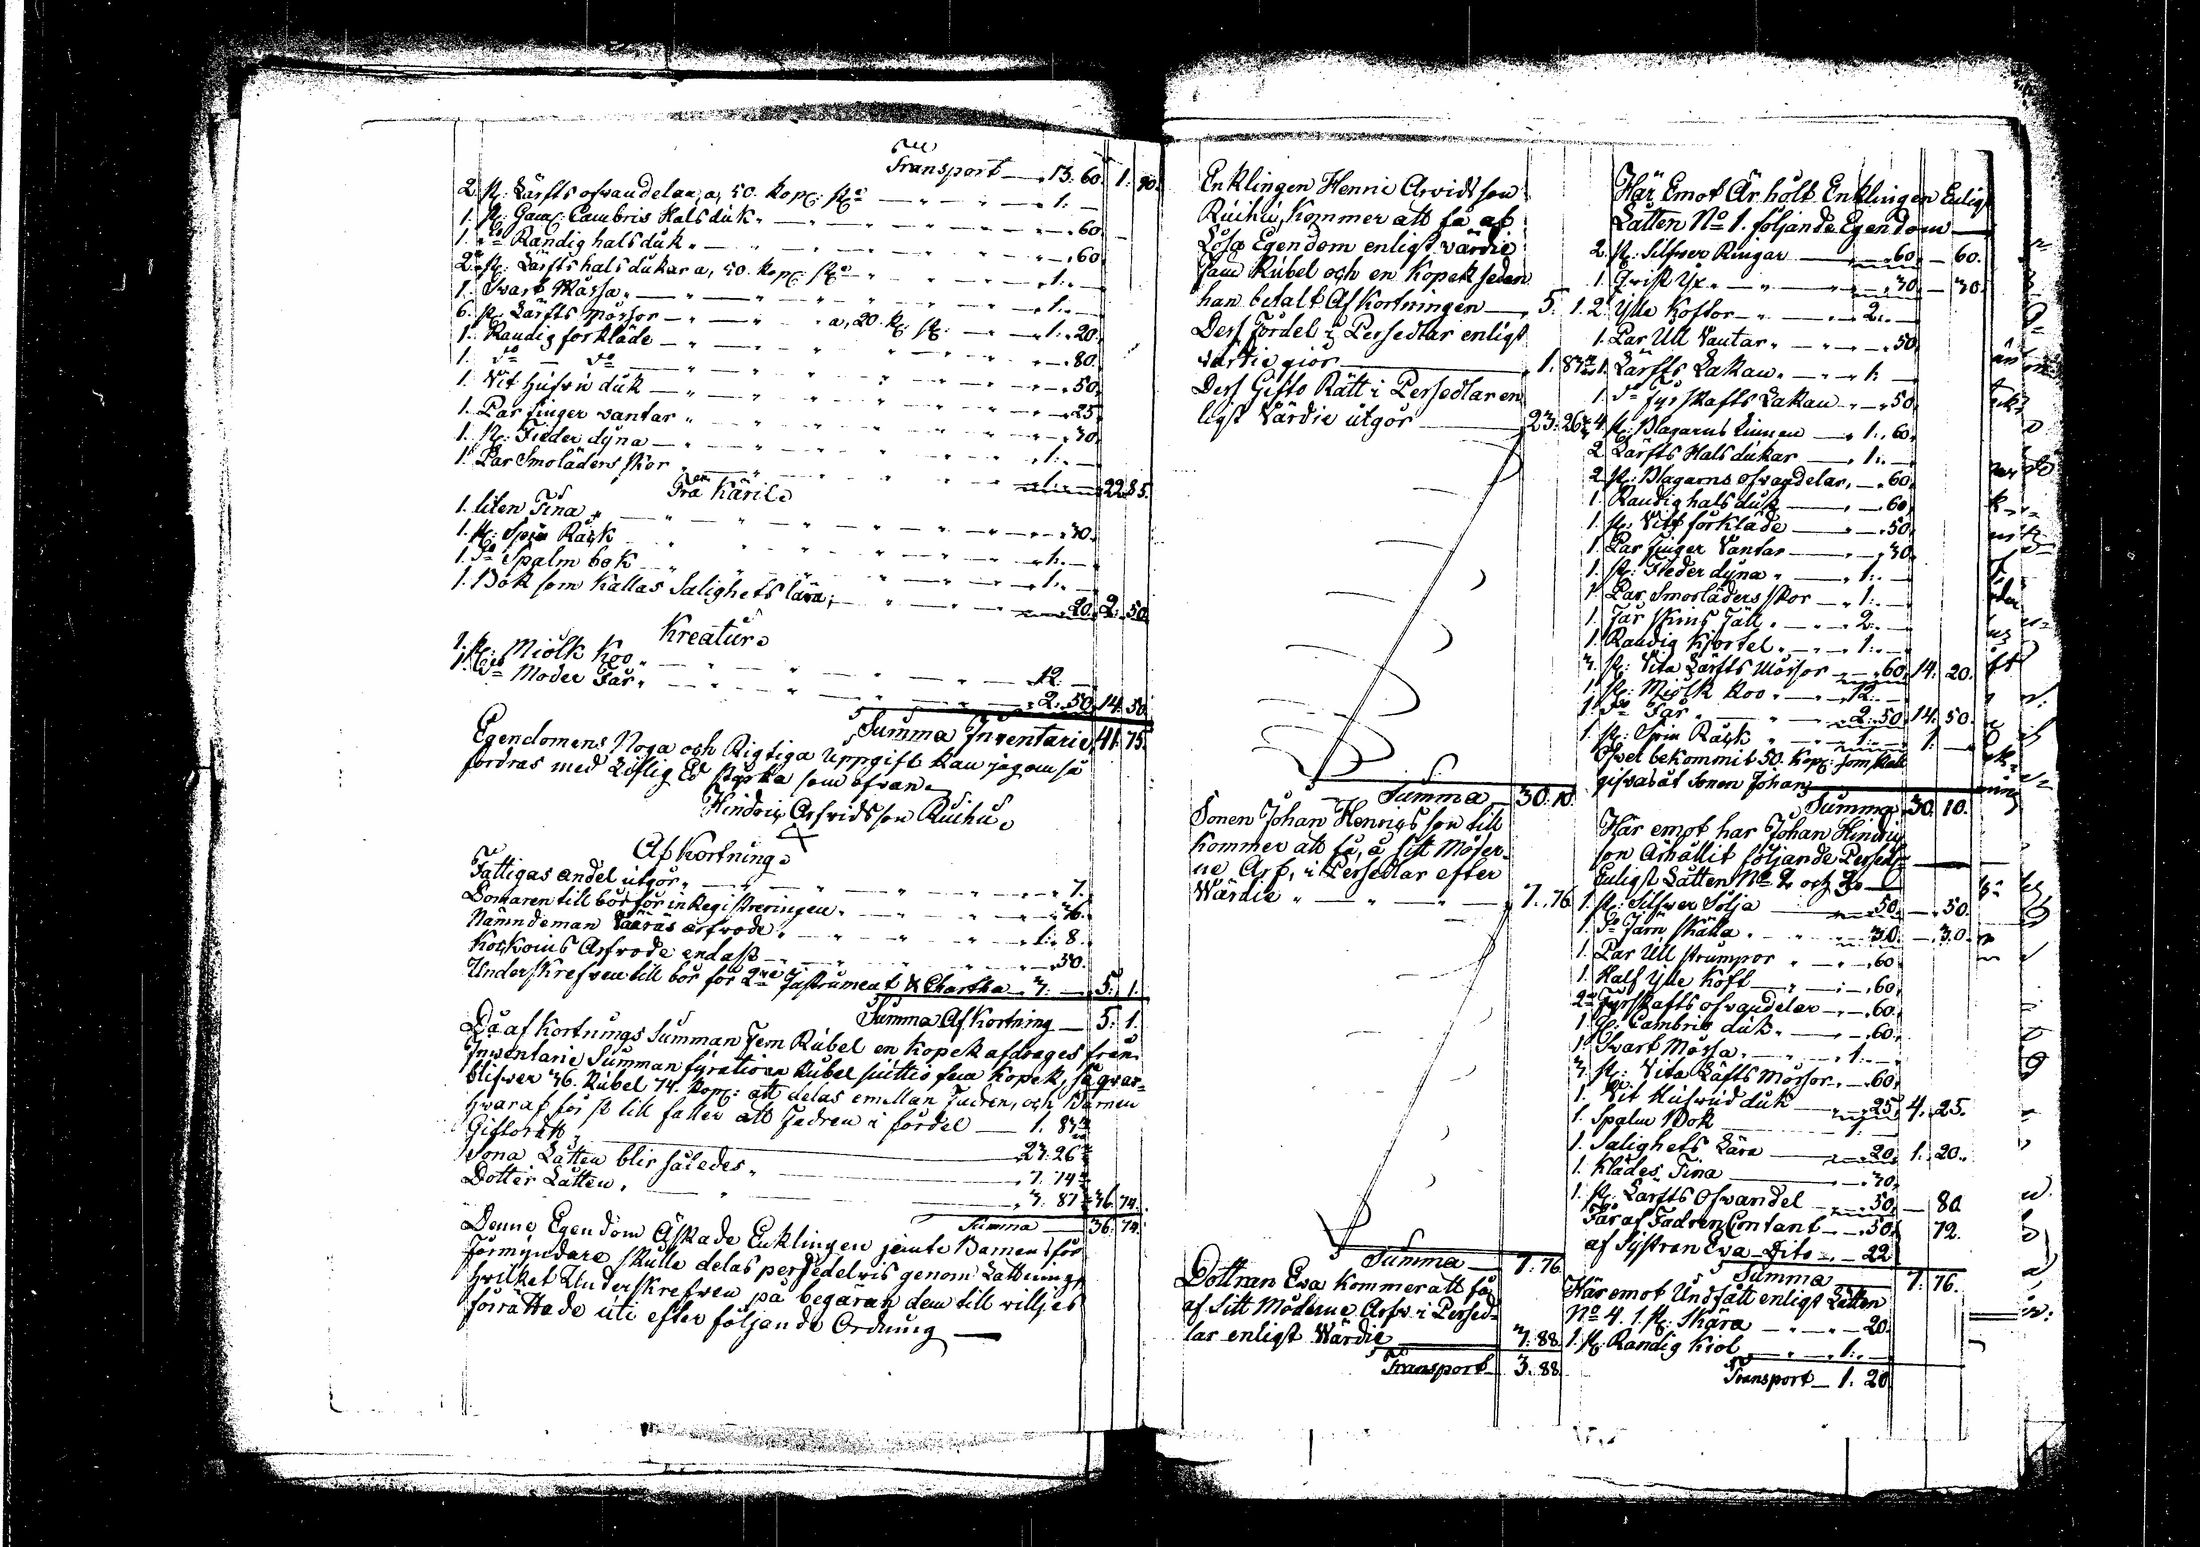 Transport — 13. 60. 1. 90.
2. st: Lärfts ofvandelar, a, 50. kop: st — 1. —
1. st: Cambris Halsduk — 60
1. do Randig halsduk — 60.
2. st: Lärfts halsdukar a, 50. kop: st — 1. —
1. Svart Mössa — 1. —
6. st: Lärfts Mössor — a, 20. k: st: — 1. 20.
1. Randig förkläde — 80.
1. do — do — 50.
1. Vit Hufvud duk — 25.
1. Par finger vantar — 30.
1. st: Fieder dyna — 1. —
1. Par Smoläders skor — 1. — 22. 85.
Trä Käril
1. liten Tina — 30.
1. st: Spin Råck — 1. —
1. do Spalm bok — 1. —
1. Bok som kallas Salighets lära; — 20. 2. 50.
Kreatur
1. st: Miölk Koo — 12. —
1. do Moder Får — 2. 50. 14. 50.
Summa Inventarie 41. 75.
Egendomens Noga och Rigtiga Uppgift kan jag om så
fordras med Liflig Ed styrka som ofvan
Hindric Arfvidsson Ruuhu
Af Kortning
Fattigas andel utgör — 7.
Domaren till bör för inRegistreringen — 36.
Nämndeman arfvode — 1. 8.
Arfvode endast — 50.
Underskrefven till bör för 2ne Instrument & Chartha — 3. — 5. 1.
Summa Af Kortning — 5. 1.
Då af Kortnings Summan Fem Rubel en Kopek afdrages från
Inventarie Summan fyratioen Rubel siuttio fem Kopek, så qvar-
blifver 36. Rubel 74. Kop: att delas emellan Fadren, och Barnen
hvaraf för st till faller att Fadren i fördel — 1. 83
Giftorätt — 23. 26
Sona Lotten blir således — 7. 74
Dotter Lotten — 3. 87 36. 74.
Summa — 36. 74.
Denne Egendom Äskade Enklingen jemte Barnens för
Förmyndare skulle delas persedelvis genom Lottning
hvilket Underskrefven på begäran dem till villjes
förrättade uti efter följande Ordning —
Enklingen Henric Arvidsson
Ruuhu, Kommer att få af
Lösa Egendom enligt värdie
Fem Rubel och en Kopek sedan
han betalt AfKortningen — 5. 1.
Dess Fördel i Persedlar enligt
värdie giör — 1. 83
Dess Gifto Rätt i Persedlar en
ligt Värdie utgör — 23. 26
Summa 30. 10
Sonen Johan Henricsson till
kommer att få, å sitt Möder-
ne Arf, i Persedlar efter
Wärdie — 7. 76.
Summa — 7. 76.
Dottran Eva kommer att få
af Sitt Möderne Arfv i Persed-
lar enligt Wärdie — 3. 88.
Transport 3. 88.
Här Emot Är hölt Enklingen Enligt
Lotten No 1. följande Egendom —
2. st: Silfver Ringar — 60. — 60.
1. Yx — 30. — 30.
2. Ylle Koftor — 2. —
1. Par Ull Vantar — 50.
1. Lärfts Lakan — 1. —
1. do Fyrskafts Lakan — 50.
4. st: Blagarns Linnen — 1. 60.
2. Lärfts Halsdukar — 1. —
2. st: Blagarns ofvandelar — 60.
1. Randig halsduk — 60.
1. st: Vitt förkläde — 50.
1. Par finger Vantar — 30.
1. st: Fieder dyna — 1. —
1. Par Smorläders skor — 1. —
1. Får Skins Fäll — 2. —
1. Randig Kjortel — 1. —
3. st: Vita Lärfts Mössor — 60. 14. 20.
1. st: Miölk Koo — 12. —
1. do Får — 2. 50. 14. 50.
1. st: Spin Råck — 1. — 1. —
Öfver bekommit 50. Kop: som skall
gifvas åt Sonen Johan
Summa 30. 10.
Här emot har Johan Hindric
son Ärhållit följande Persedl
Enligt Lotten No 2. och 3. —
1. st: Silfver Sölja — 50. — 50.
1. do Järn skälla — 30. — 30.
1. Par Ull strumpor — 60.
1. Half Ylle Koft — 60.
2. Fyrskafts ofvandelar — 60.
1. st: Cambris duk — 60.
1. Svart Mössa — 1. —
3. st: Vita Läfts Mössor — 60.
1. Vit Hufvud duk — 25. 4. 25.
1. Spalm Bok — 1. —
1. Salighets Lära — 20. 1. 20.
1. Klädes Tina — 30.
1. st: Lärfts Ofvandel — 50. — 80.
Får af Fadren Contant — 50. 72.
af Systran Eva — Dito — 22
Summa — 7. 76.
Här emot Undfått enligt Lotten
No 4. 1. st: Skära — 20.
1. st: Randig Kiol — 1. —
Transport — 1. 20